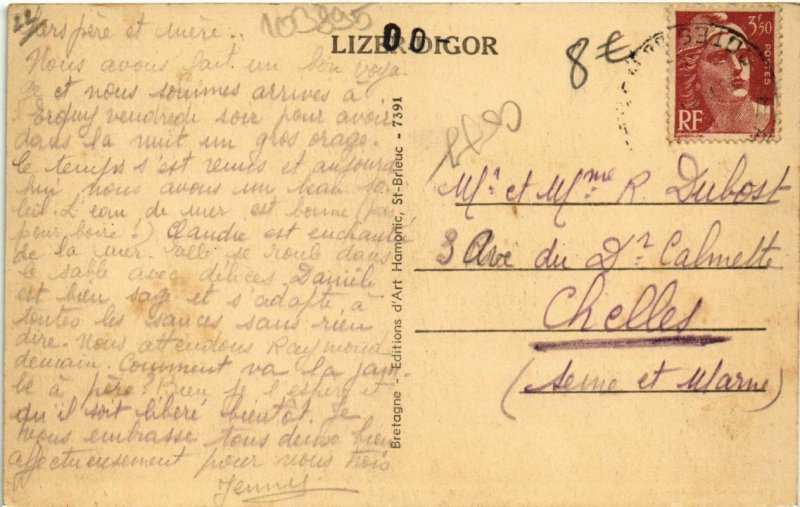 103895
LIZER-DIGOR
00-
8€
3F50
POSTES
RF
père et mère..
Nous avons fait un bon voya-
ge et nous sommes arrivés à
Erquy vendredi soir pour avoir
dans la nuit un gros orage.
Le temps s'est remis et aujourd
hui nous avons un beau so-
leil. L'eau de mer est bonne (pas
pour boire!) Claudie est enchantée
de la mer. elle se roule dans
le sable avec délices. Danièle
est bien sage et s'adapte à
toutes les sauces sans rien
dire. Nous attendons Raymond
demain. Comment va la jam-
be à père? Bien je l'espère et
qu'il soit libéré bientôt. Je
vous embrasse tous deux bien
affectueusement pour nous trois
Jenny
Bretagne - Editions d'Art Hamonic, St-Brieuc - 7391
Mr et Mme R. Dubost
3 Ave du Dr Calmette
Chelles
(Seine et Marne)